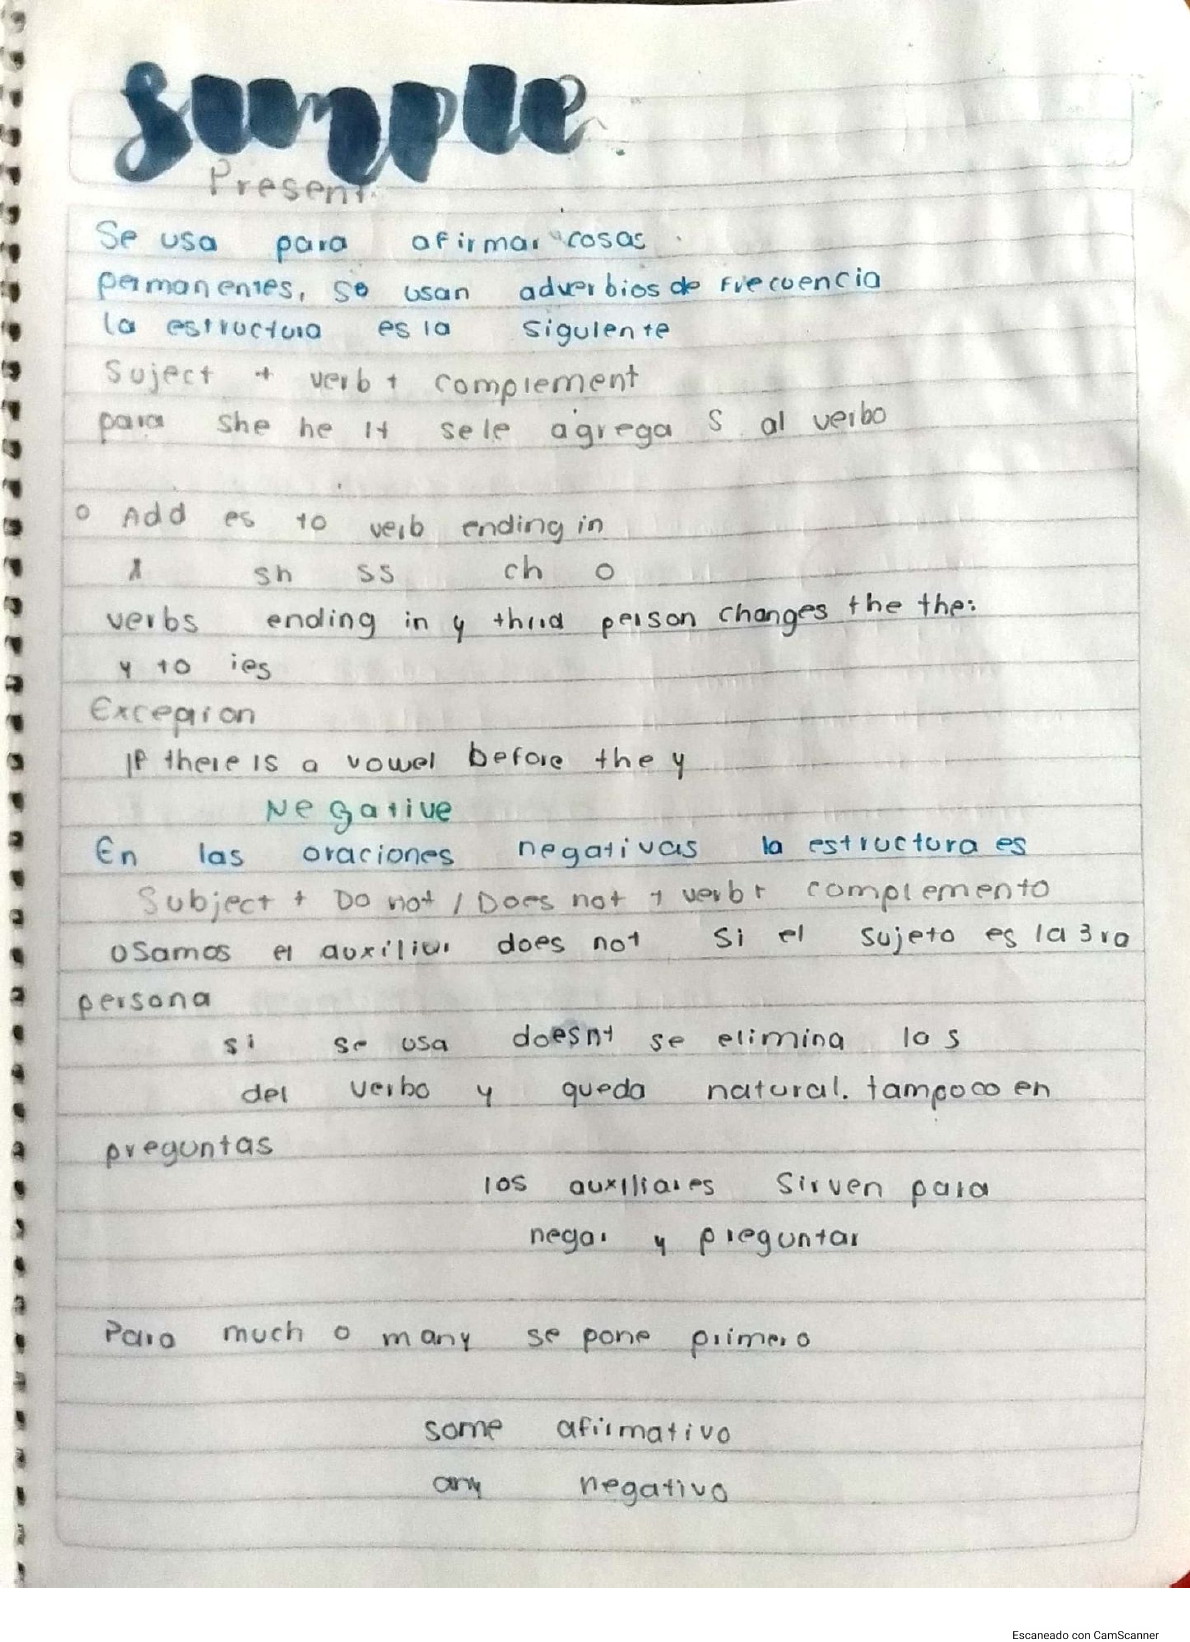 Simple
Present.
Se usa para afirmar cosas
permanentes, se usan adverbios de frecuencia
la estructura es la siguiente
Suject + verb + complement
para she he It se le agrega S al verbo
o Add es to verb ending in
x sh ss ch o
verbs ending in y thrid person changes the the:
y to ies
Exception
If there is a vowel before the y
Negative
En las oraciones negativas la estructura es
Subject + Do not / Does not + verb + complemento
Usamos el auxiliar does not si el sujeto es la 3ra
persona
si se usa doesnt se elimina la s
del verbo y queda natural. tampoco en
preguntas
los auxiliares sirven para
negar y preguntar
Para much o many se pone primero
some afirmativo
any negativo
Escaneado con CamScanner